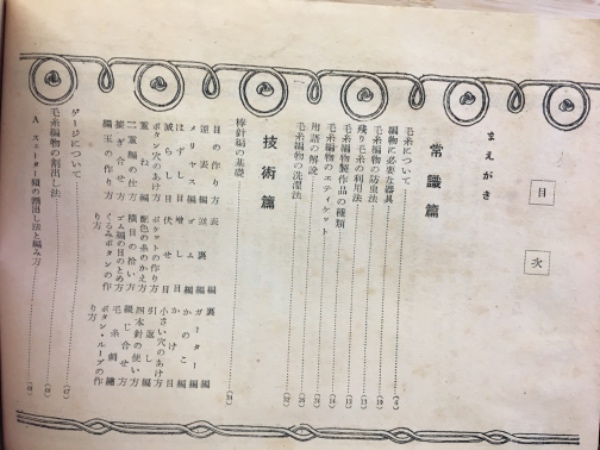 目次
まえがき
常識篇
毛糸について
編物に必要な器具
毛糸編物の防虫法
残り毛糸の利用法
毛糸編物製作品の種類
毛糸編物のエティケット
用語の解説
毛糸編物の洗濯法
技術篇
棒針編の基礎
目の作り方 表編 裏編
逆表編 逆裏編 ガーター編
メリヤス編 ゴム編 かのこ編
はずし目 増し目 かけ目
減らし目 伏せ目 小さい穴のあけ方
ボタン穴のあけ方 ポケットの作り方 引返し編
重ね編 配色の糸のかえ方 四本針の使い方
二重編の仕方 横目の拾い方 綴じ合せ方
接ぎ合せ方 ゴム編の目のとめ方 毛糸刺繍
編玉の作り方 くるみボタンの作り方 ボタン・ループの作り方
ゲージについて
毛糸編物の割出し法
A スエーター類の割出し法と編み方